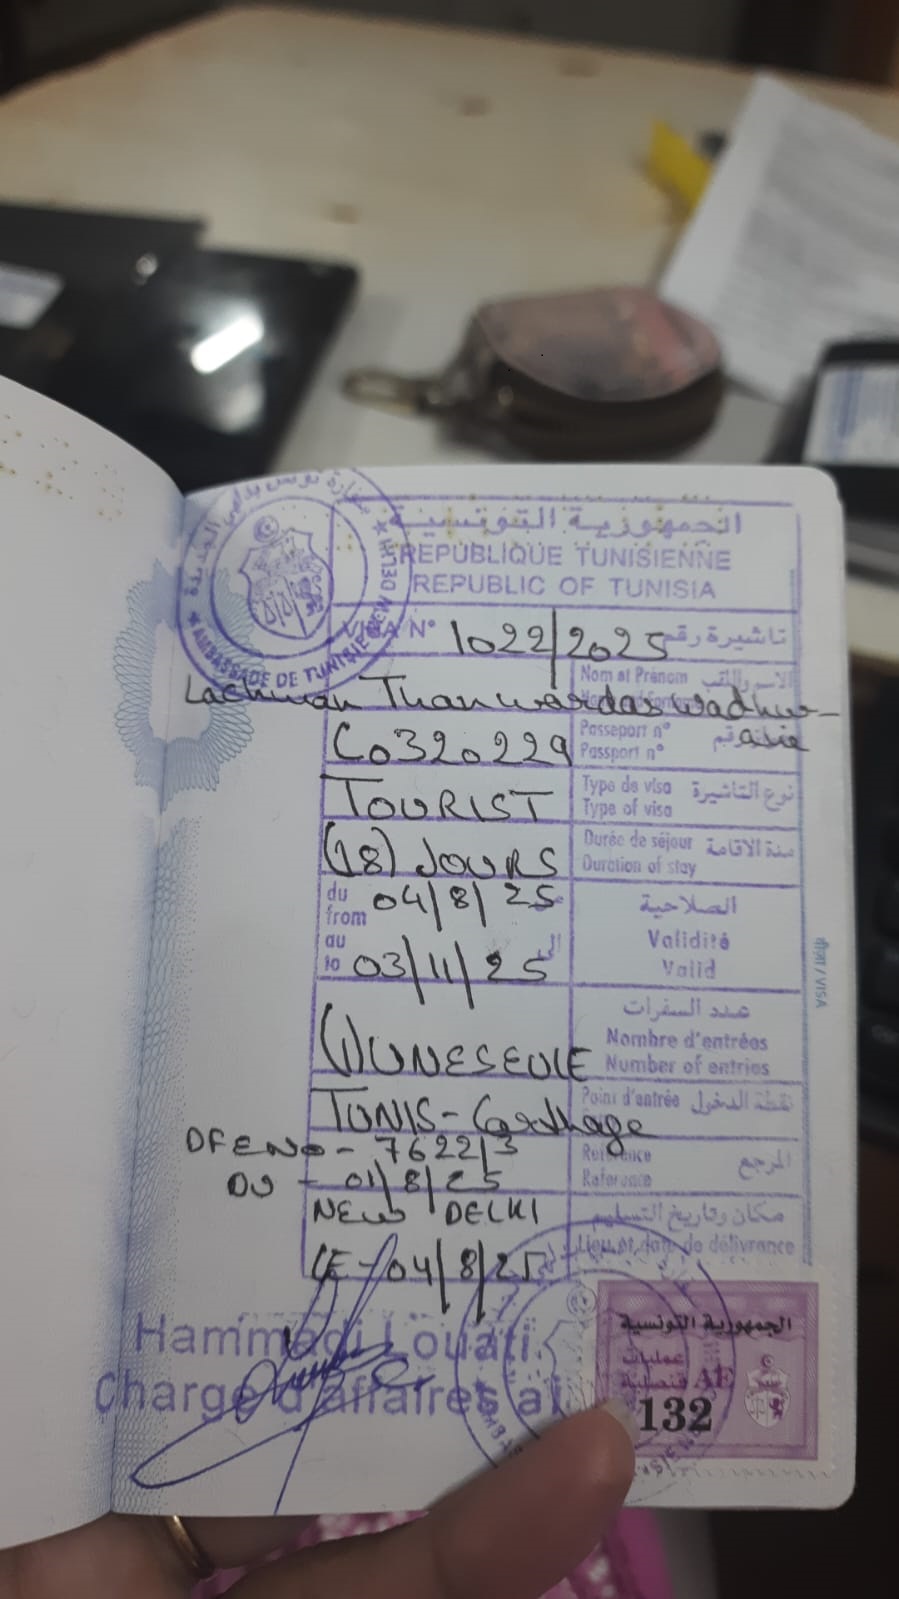 الجمهورية التونسية
REPUBLIQUE TUNISIENNE
REPUBLIC OF TUNISIA
AMBASSADE DE TUNISIE NEW DELHI
VISA N° 1022/2025 تاشيرة رقم
Nom et Prénom الاسم واللقب
Lachman Thanwardas Wadhw-
C0320229 Passeport n°
Passport n°
TOURIST Type de visa نوع التاشيرة
Type of visa
(18) JOURS Durée de séjour مدة الاقامة
Duration of stay
du
from 04/8/25 الصلاحية
au Validité
to 03/11/25 الى Valid
عدد السفرات
Nombre d'entrées
(1) UNESEULE Number of entries
TUNIS-Carthage Point d'entrée نقطة الدخول
DFENO - 7622/3 Référence المرجع
DU - 01/8/25 Reference
NEW DELHI مكان وتاريخ التسليم
LE-04/8/25 Lieu et date de délivrance
वीज़ा / VISA
Hammadi Louati
Chargé d'affaires a.i
الجمهورية التونسية
عمليات
قنصلية AE
132